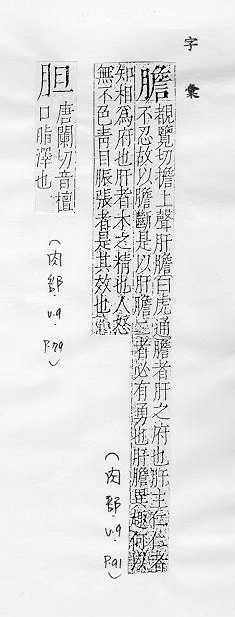 字彙
膽
覩覽切擔上聲肝膽白虎通膽者肝之府也肝主仁仁者
不忍故以膽斷是以肝膽二者必有勇也肝膽異趣何以
知相為府也肝者木之精也人怒
無不色青目脤張者是其效也
(肉部. v.9. P.91)
胆
唐闌切音檀
口脂澤也
(肉部. v.9. P.79)